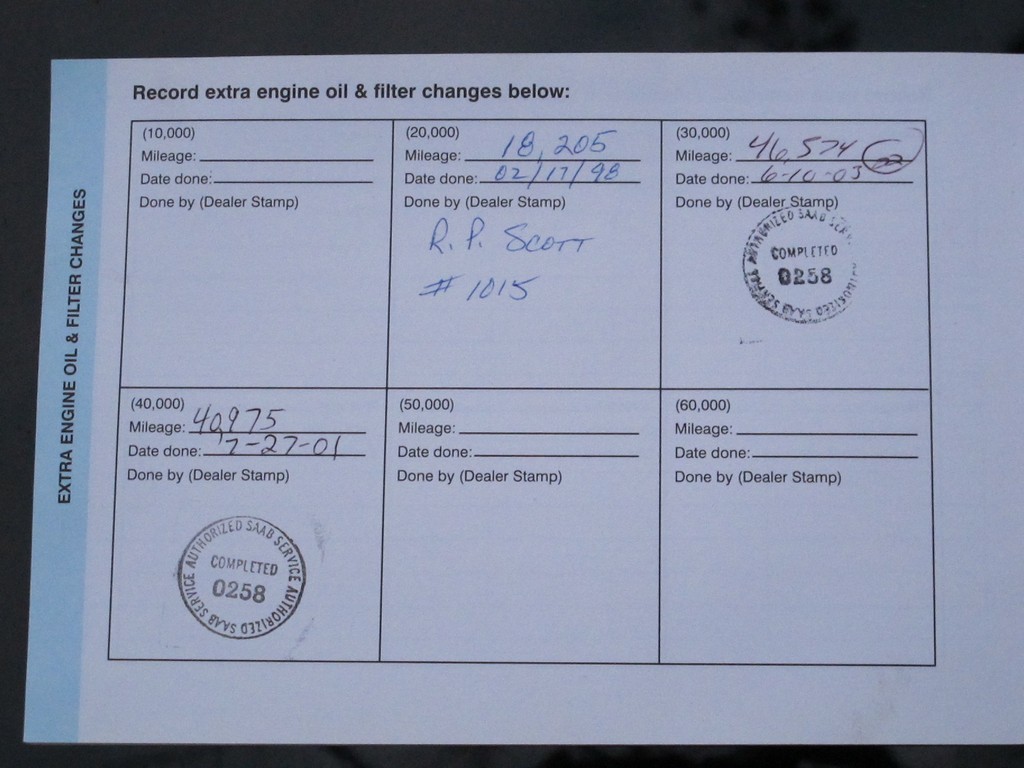 Record extra engine oil & filter changes below:
EXTRA ENGINE OIL & FILTER CHANGES
(10,000)
Mileage:
Date done:
Done by (Dealer Stamp)
(20,000)
Mileage: 18,205
Date done: 02/17/98
Done by (Dealer Stamp)
R. P. SCOTT
# 1015
(30,000)
Mileage: 46,574
Date done: 6-10-03
Done by (Dealer Stamp)
AUTHORIZED SAAB SERVICE AUTHORIZED SAAB SERVICE
COMPLETED
0258
(40,000)
Mileage: 40,975
Date done: 7-27-01
Done by (Dealer Stamp)
AUTHORIZED SAAB SERVICE AUTHORIZED SAAB SERVICE
COMPLETED
0258
(50,000)
Mileage:
Date done:
Done by (Dealer Stamp)
(60,000)
Mileage:
Date done:
Done by (Dealer Stamp)